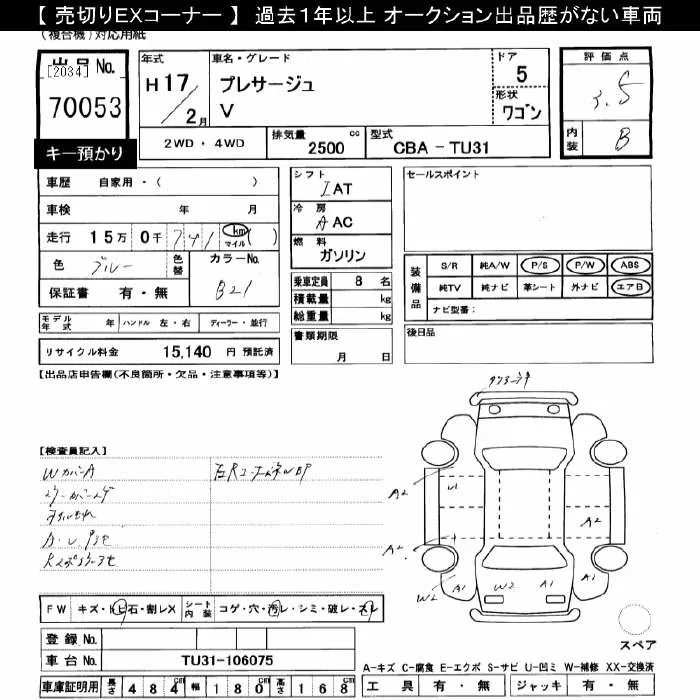 【 売切りEXコーナー 】 過去1年以上 オークション出品歴がない車両
(複合機)対応用紙
出品 No.
[2034]
70053
キー預かり
年式
H 17 / 2月
車名・グレード
プレサージュ
V
ドア
5
形状
ワゴン
評価点
3.5
内装
B
2WD・4WD
排気量
2500 cc
型式
CBA - TU31
車歴 自家用・( )
車検 年 月
走行 15万 0千 741 km マイル ( )
色 ブルー
色替
カラーNo.
B21
保証書 有・無
シフト
IAT
冷房
AAC
燃料
ガソリン
乗車定員 8 名
積載量 kg
総重量 kg
書類期限
月 日
セールスポイント
装備品
S/R 純A/W P/S P/W ABS
純TV 純ナビ 革シート 外ナビ エアB
ナビ型番:
後日品
モデル年式 年 ハンドル 左・右 ディーラー・並行
リサイクル料金 15,140 円 預託済
【出品店申告欄(不良箇所・欠品・注意事項等)】
【検査員記入】
WカバーA
A2
A2
W1
A2
W2 A1
W2
A1
A1
FW キズ・トビ石・割レX
シート内装 コゲ・穴・汚レ・シミ・破レ・スレ
登録 No.
車台 No. TU31-106075
車庫証明用 長さ 484 cm 幅 180 cm 高さ 168 cm
スペア
A-キズ C-腐食 E-エクボ S-サビ U-凹ミ W-補修 XX-交換済
工具 有・無 ジャッキ 有・無